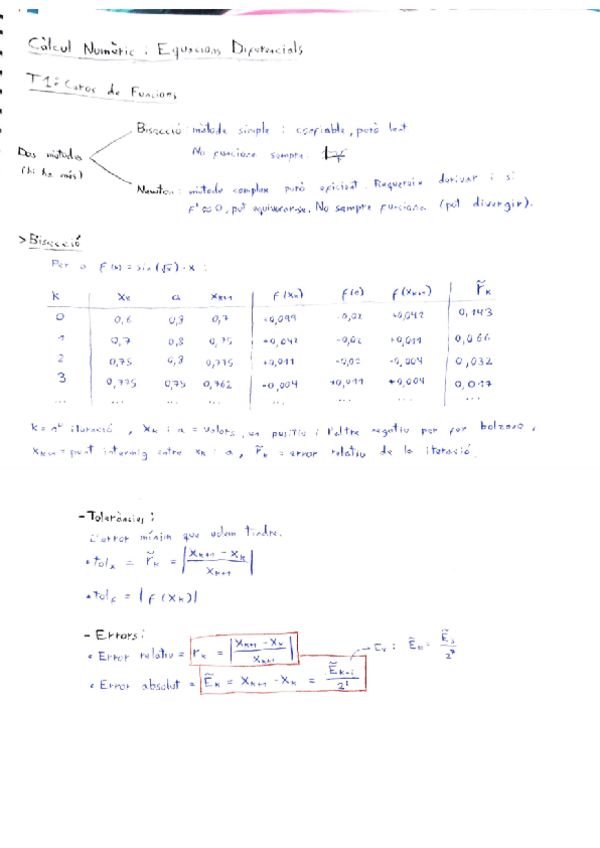 Càlcul Numèric i Equacions Diferencials
T1: Ceros de Funcions
Bisecció: mètode simple i confiable, però lent
No funciona sempre.
Dos mètodes
(hi ha més)
Newton: mètode complex però eficient. Requereix derivar i si
F' ≈ 0, pot equivocar-se. No sempre funciona (pot divergir).
> Bisecció
Per a f(x) = sin(√x) - x :
k xₖ a xₖ₊₁ f(xₖ) f(a) f(xₖ₊₁) r̃ₖ
0 0,6 0,8 0,7 +0,099 -0,02 +0,042 0,143
1 0,7 0,8 0,75 +0,042 -0,02 +0,011 0,066
2 0,75 0,8 0,775 +0,011 -0,02 -0,004 0,032
3 0,775 0,75 0,762 -0,004 +0,011 +0,004 0,017
... ... ... ... ... ... ... ...
k = nº iteració, xₖ i a = valors, un positiu i l'altre negatiu per fer bolzano,
xₖ₊₁ = punt intermig entre xₖ i a, r̃ₖ = error relatiu de la iteració.
- Toleràncies:
L'error mínim que volem tindre.
• tolₓ = r̃ₖ = |(xₖ₊₁ - xₖ) / xₖ₊₁|
• tol_f = |f(xₖ)|
- Errors:
• Error relatiu = rₖ = |(xₖ₊₁ - xₖ) / xₖ₊₁|
• Error absolut = Ẽₖ = xₖ₊₁ - xₖ = Ẽₖ₋ᵢ / 2ⁱ